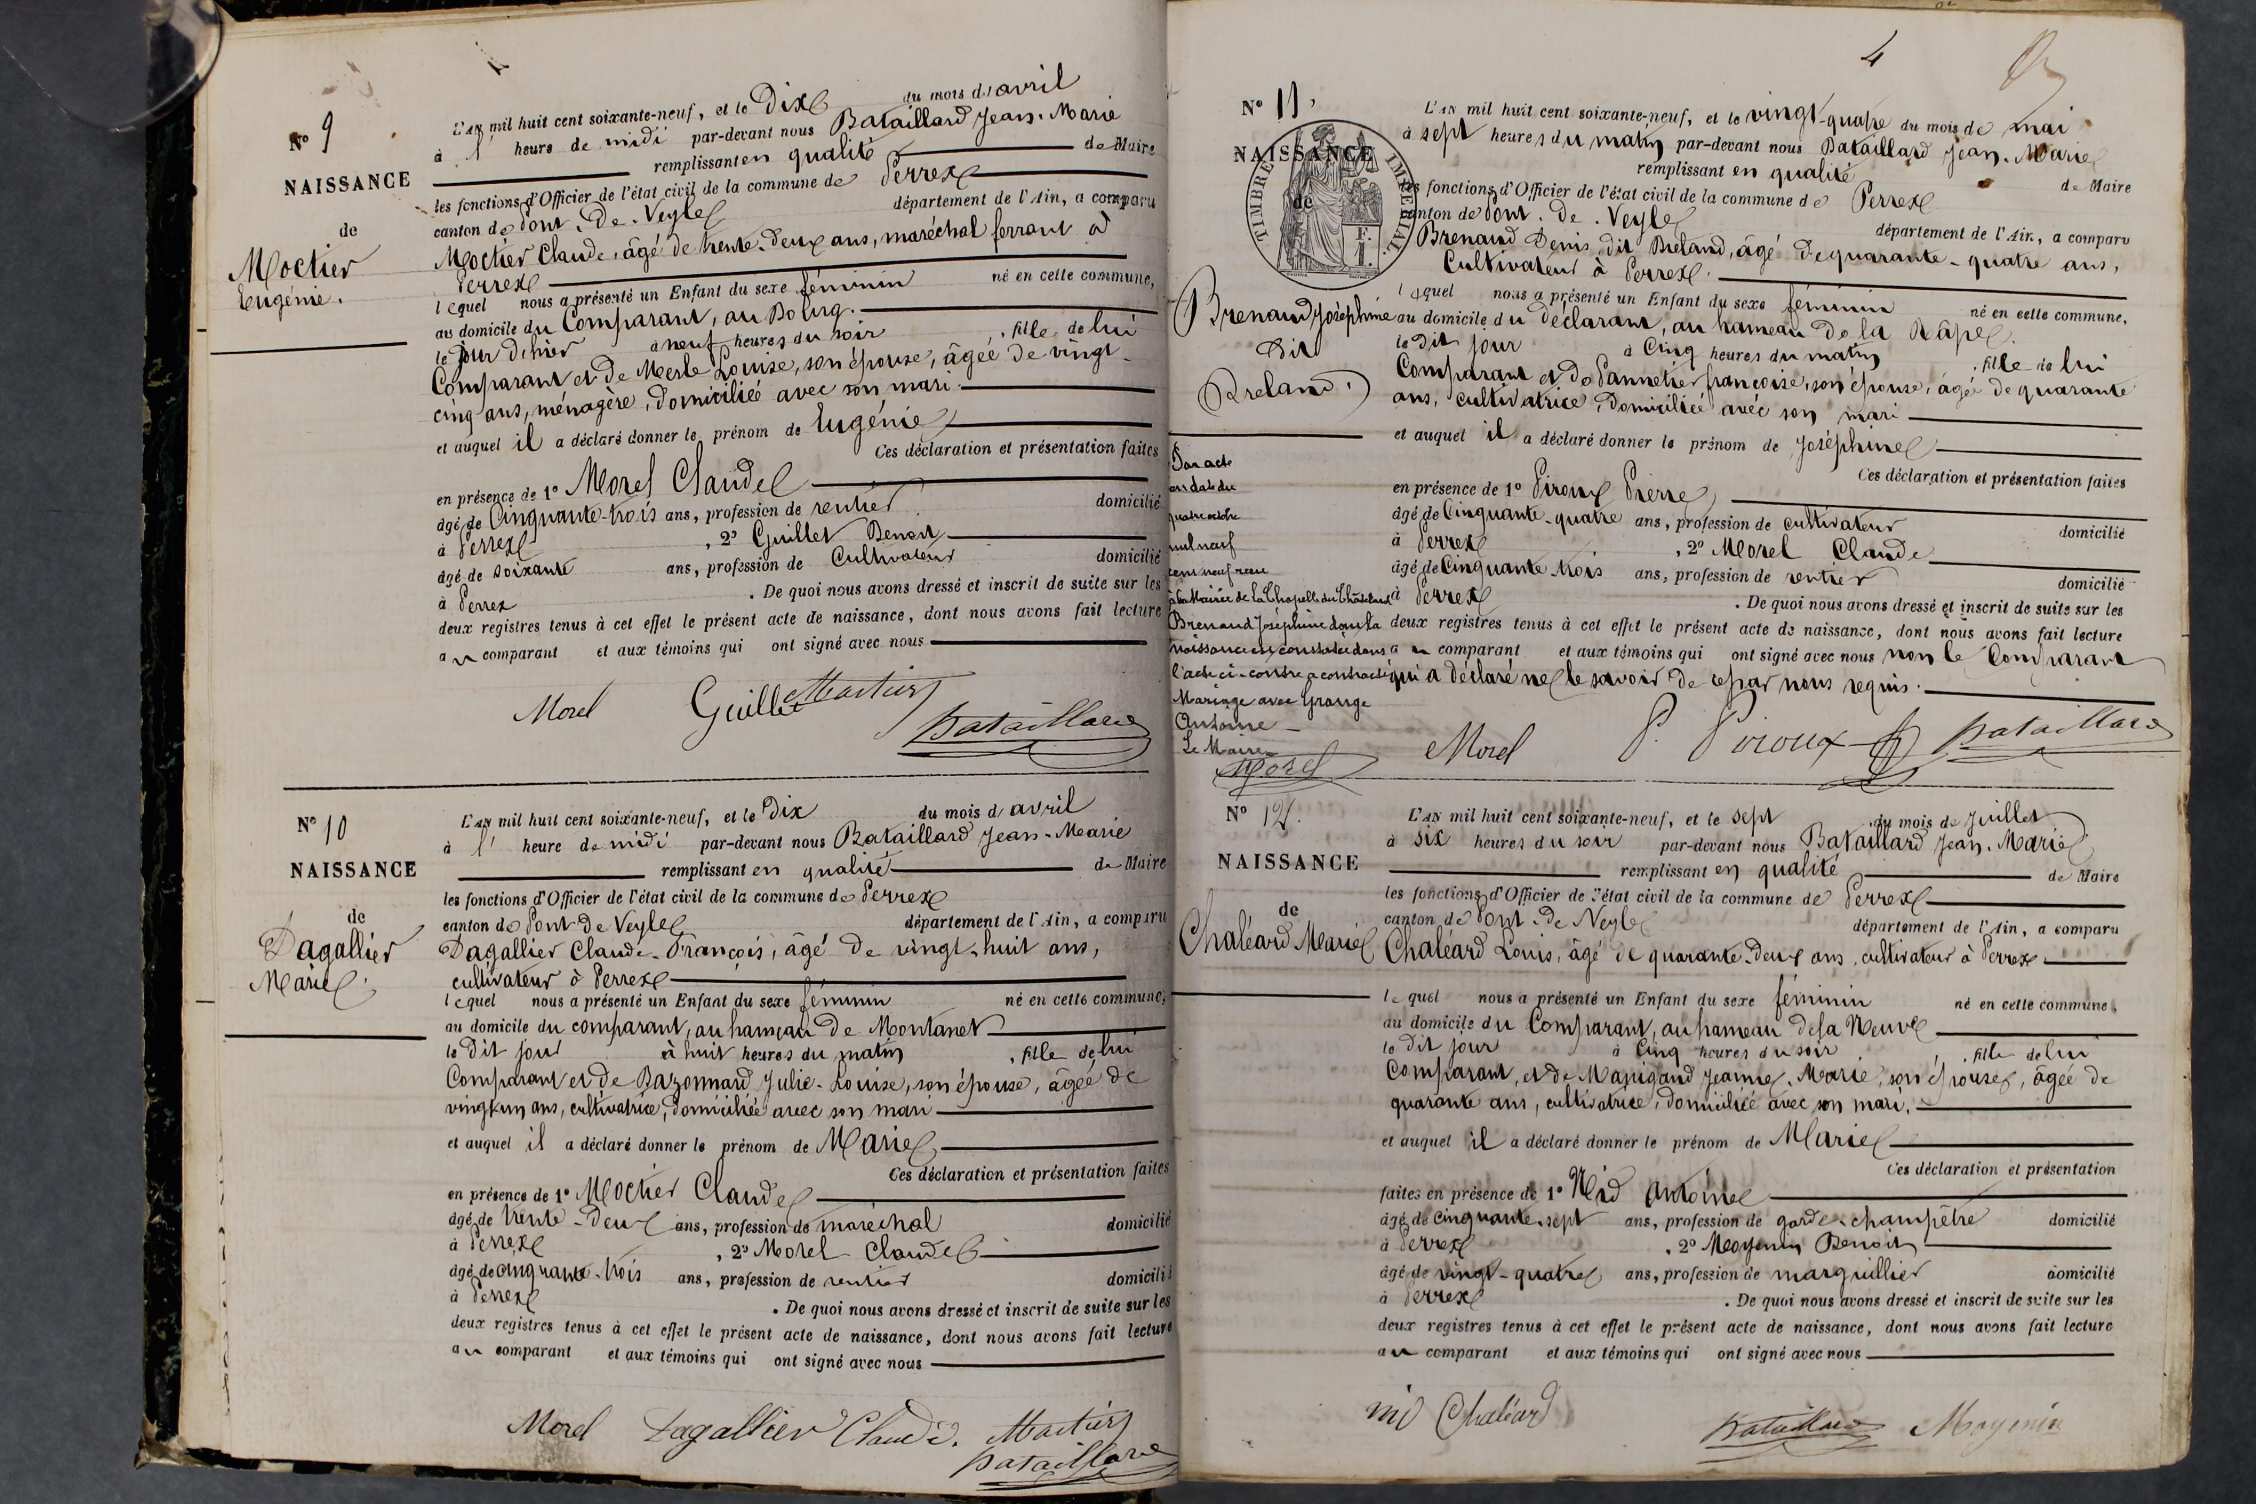 N° 9
NAISSANCE
de
Moctier
Eugénie.
L'AN mil huit cent soixante-neuf, et le Dix du mois d'avril
à l' heure de midi par-devant nous Bataillard Jean-Marie
remplissant en qualité de Maire
les fonctions d'Officier de l'état civil de la commune de Perrex
canton de Pont-de-Veyle département de l'Ain, a comparu
Moctier Claude, âgé de trente-deux ans, maréchal ferrant à
Perrex
lequel nous a présenté un Enfant du sexe féminin né en cette commune,
au domicile du Comparant, au Bourg.
le jour d'hier à neuf heures du soir, fille de lui
Comparant et de Merle Louise, son épouse, âgée de vingt-
cinq ans, ménagère, domiciliée avec son mari
et auquel il a déclaré donner le prénom de Eugénie
Ces déclaration et présentation faites
en présence de 1° Morel Claude
âgé de Cinquante-trois ans, profession de rentier domicilié
à Perrex, 2° Guillet Benoit
âgé de soixante ans, profession de Cultivateur domicilié
à Perrex. De quoi nous avons dressé et inscrit de suite sur les
deux registres tenus à cet effet le présent acte de naissance, dont nous avons fait lecture
au comparant et aux témoins qui ont signé avec nous
Morel Guillet Moctier
Bataillard
N° 10
NAISSANCE
de
Dagallier
Marie.
L'AN mil huit cent soixante-neuf, et le Dix du mois d'avril
à l' heure de midi par-devant nous Bataillard Jean-Marie
remplissant en qualité de Maire
les fonctions d'Officier de l'état civil de la commune de Perrex
canton de Pont-de-Veyle département de l'Ain, a comparu
Dagallier Claude-François, âgé de vingt-huit ans,
cultivateur à Perrex
lequel nous a présenté un Enfant du sexe féminin né en cette commune,
au domicile du comparant, au hameau de Montanet
le dit jour à huit heures du matin, fille de lui
Comparant et de Bazonnard Julie-Louise, son épouse, âgée de
vingt-un ans, cultivatrice, domiciliée avec son mari
et auquel il a déclaré donner le prénom de Marie
Ces déclaration et présentation faites
en présence de 1° Moctier Claude
âgé de trente-deux ans, profession de maréchal domicilié
à Perrex, 2° Morel Claude
âgé de cinquante-trois ans, profession de rentier domicilié
à Perrex. De quoi nous avons dressé et inscrit de suite sur les
deux registres tenus à cet effet le présent acte de naissance, dont nous avons fait lecture
au comparant et aux témoins qui ont signé avec nous
Morel Dagallier Claude. Moctier
Bataillard
4
N° 11
NAISSANCE
de
TIMBRE IMPÉRIAL
Brenaud Joséphine
dit
Breland
L'AN mil huit cent soixante-neuf, et le vingt-quatre du mois de mai
à sept heures du matin par-devant nous Bataillard Jean-Marie
remplissant en qualité de Maire
les fonctions d'Officier de l'état civil de la commune de Perrex
canton de Pont-de-Veyle département de l'Ain, a comparu
Brenaud Denis, dit Breland, âgé de quarante-quatre ans,
Cultivateur à Perrex.
lequel nous a présenté un Enfant du sexe féminin né en cette commune,
au domicile du déclarant, au hameau de la Râpe.
le dit jour à Cinq heures du matin, fille de lui
Comparant et de Pannetier françoise, son épouse, âgée de quarante
ans, cultivatrice, domiciliée avec son mari
et auquel il a déclaré donner le prénom de Joséphine
Ces déclaration et présentation faites
en présence de 1° Piroux Pierre
âgé de Cinquante-quatre ans, profession de cultivateur domicilié
à Perrex, 2° Morel Claude
âgé de Cinquante-trois ans, profession de rentier domicilié
à Perrex. De quoi nous avons dressé et inscrit de suite sur les
deux registres tenus à cet effet le présent acte de naissance, dont nous avons fait lecture
au comparant et aux témoins qui ont signé avec nous non le Comparant
qui a déclaré ne le savoir de ce par nous requis.
Par acte
en date du
quatre octobre
mil neuf
cent neuf reçu
à la Mairie de la Chapelle du Châtelard
Brenaud Joséphine dont la
naissance est constatée dans
l'acte ci-contre a contracté
Mariage avec Grange
Antoine
Le Maire
Morel
Morel P. Piroux Bataillard
N° 12.
NAISSANCE
de
Chaléard Marie
L'AN mil huit cent soixante-neuf, et le sept du mois de Juillet
à six heures du soir par-devant nous Bataillard Jean-Marie
remplissant en qualité de Maire
les fonctions d'Officier de l'état civil de la commune de Perrex
canton de Pont-de-Veyle département de l'Ain, a comparu
Chaléard Louis, âgé de quarante-deux ans, cultivateur à Perrex
lequel nous a présenté un Enfant du sexe féminin né en cette commune,
au domicile du Comparant, au hameau de la Neuve
le dit jour à Cinq heures du soir, fille de lui
Comparant, et de Manigand Jeanne-Marie, son épouse, âgée de
quarante ans, cultivatrice, domiciliée avec son mari.
et auquel il a déclaré donner le prénom de Marie
Ces déclaration et présentation
faites en présence de 1° Nid Antoine
âgé de cinquante-sept ans, profession de garde-champêtre domicilié
à Perrex, 2° Moyenin Benoit
âgé de vingt-quatre ans, profession de marguillier domicilié
à Perrex. De quoi nous avons dressé et inscrit de suite sur les
deux registres tenus à cet effet le présent acte de naissance, dont nous avons fait lecture
au comparant et aux témoins qui ont signé avec nous
nid Chaléard Bataillard Moyenin